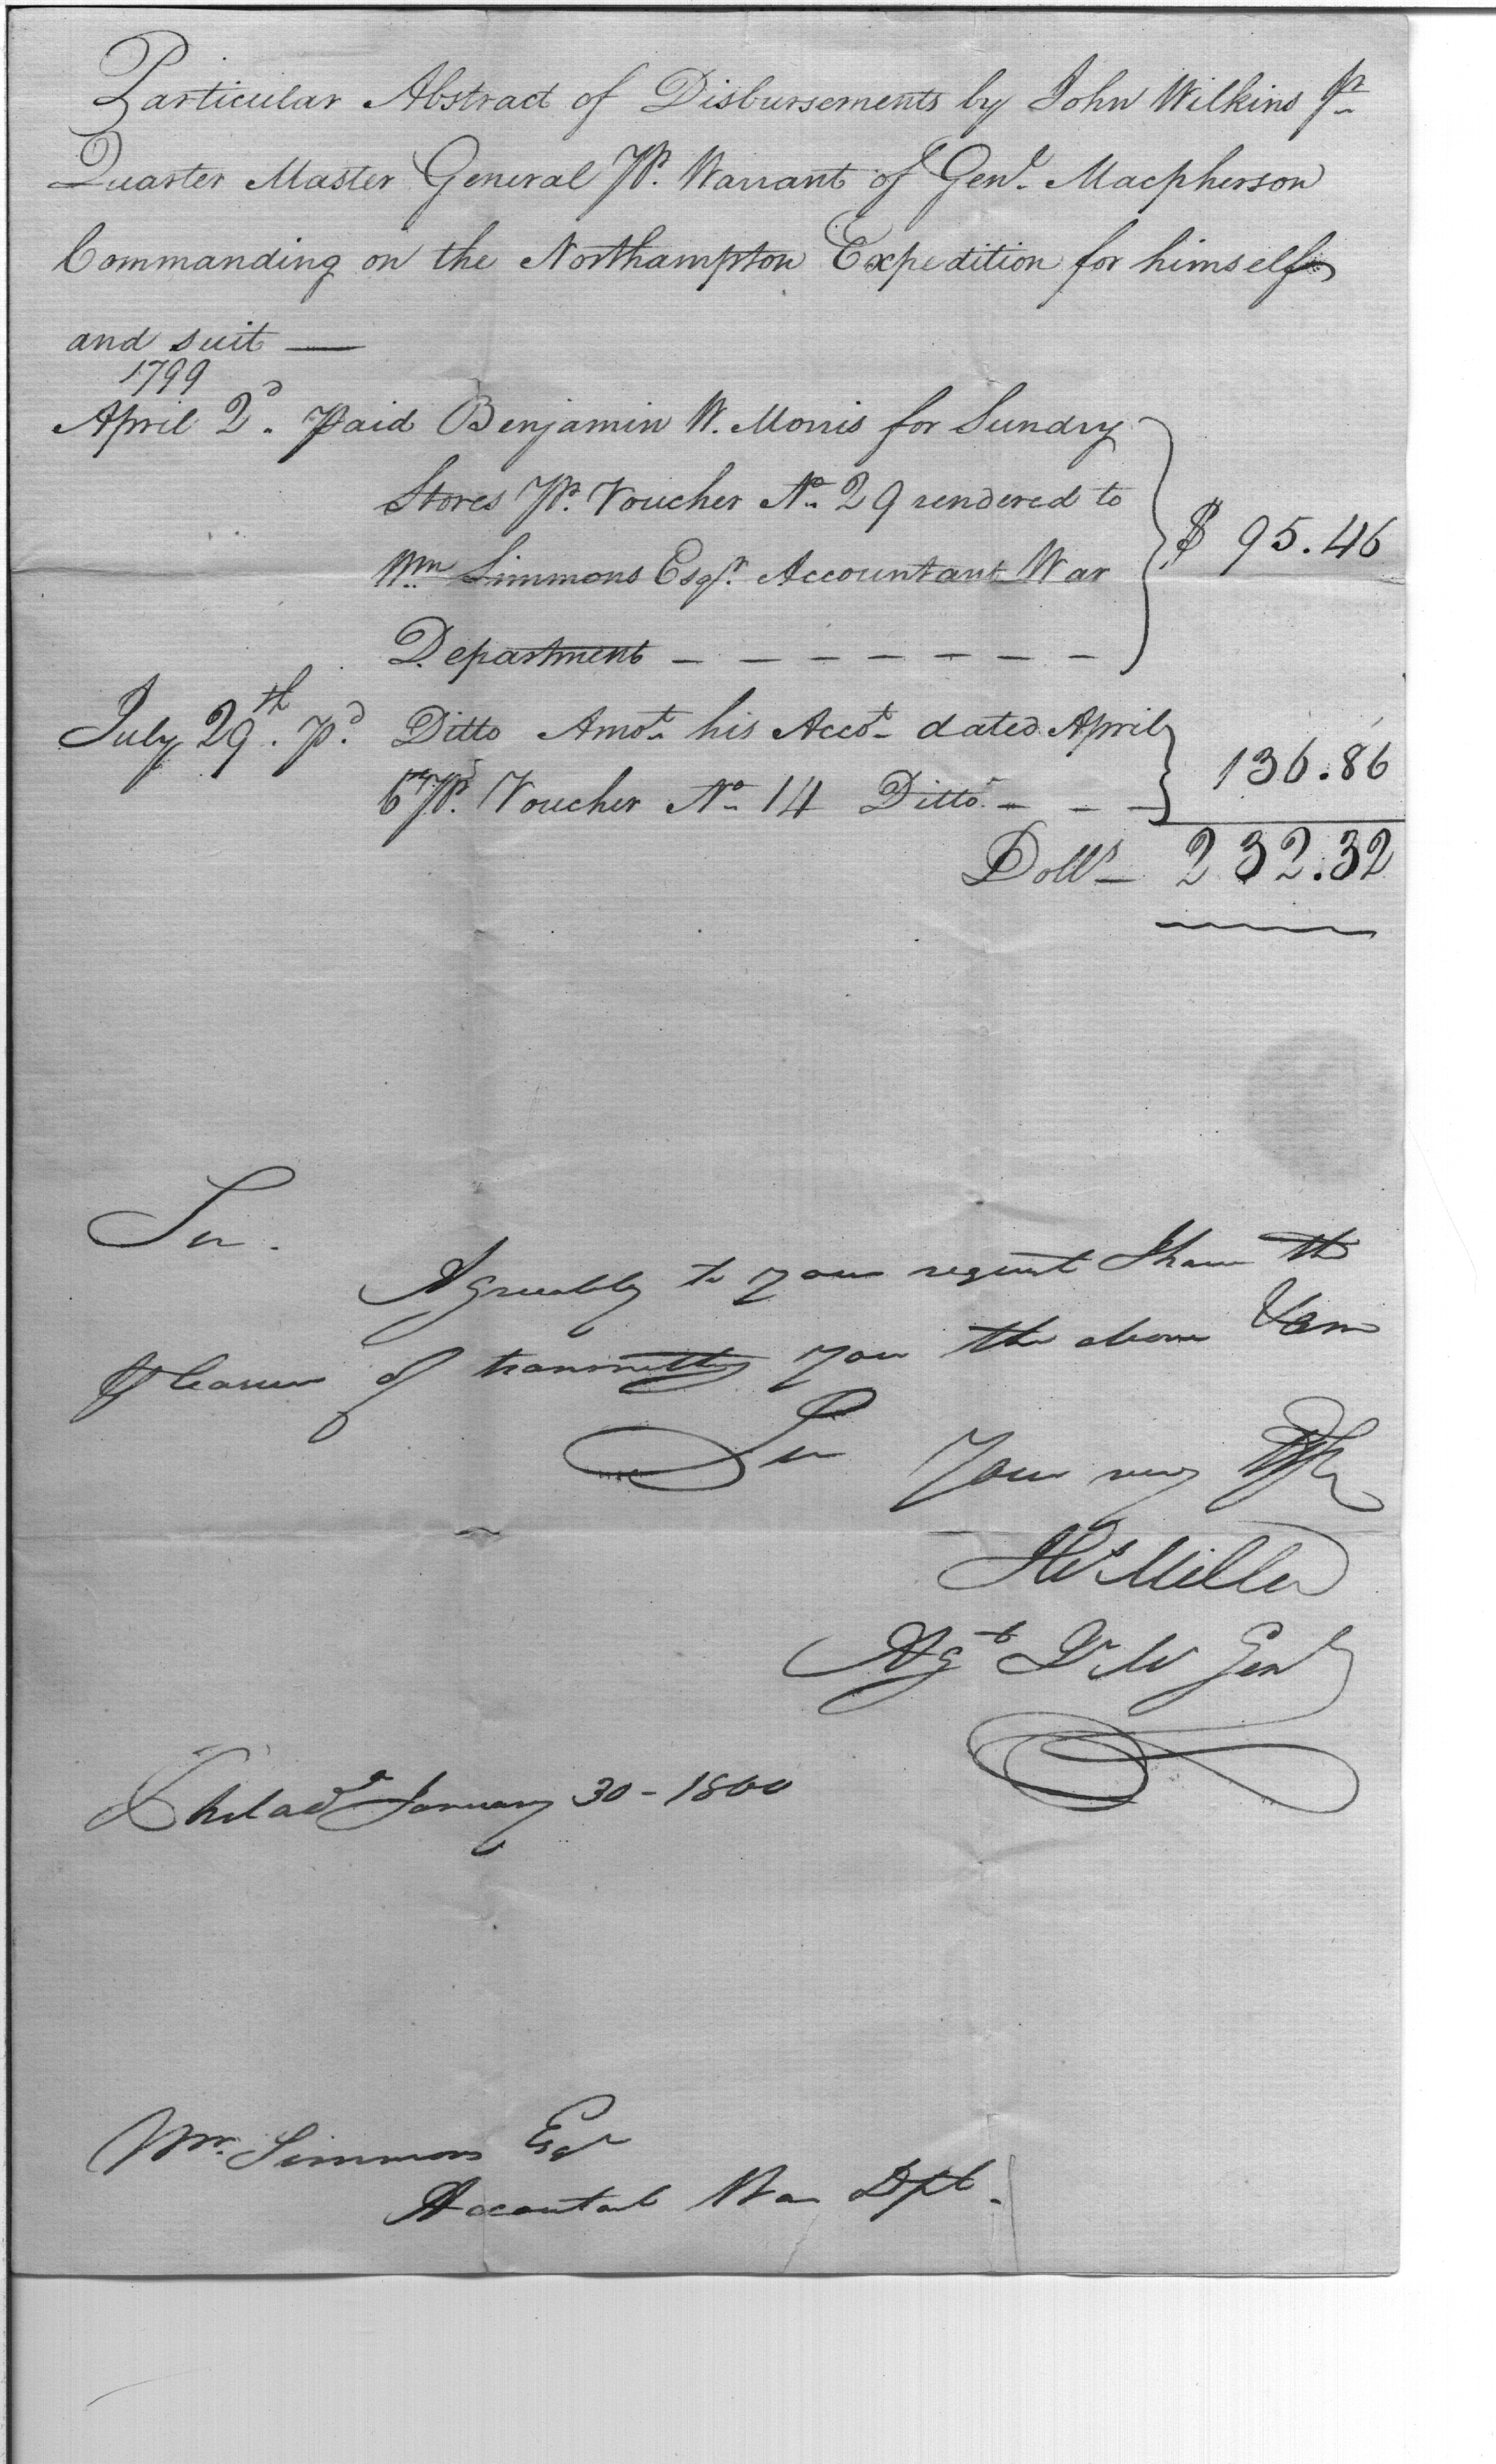 Particular Abstract of Disbursements by John Wilkins Jr
Quarter Master General Pr. Warrant of Genl. Macpherson
Commanding on the Northampton Expedition for himself
and suit —
1799
April 2d. Paid Benjamin W. Morris for Sundry
Stores Pr. Voucher No. 29 rendered to
Wm Simmons Esqr. Accountant War
$ 95.46
Department - - - - - - - -
July 29th. Pd. Ditto Amot. his Accot. dated April
6th Pr. Voucher No. 14 Ditto - - -
136.86
Dolls. 232.32
Sir.
Agreeably to your request I have the
pleasure of transmitting you the above
Sir Your very
Hy Miller
Agt Qr M Genl
Philada January 30 - 1800
Wm. Simmons Esqr
Accountant War Dpt.